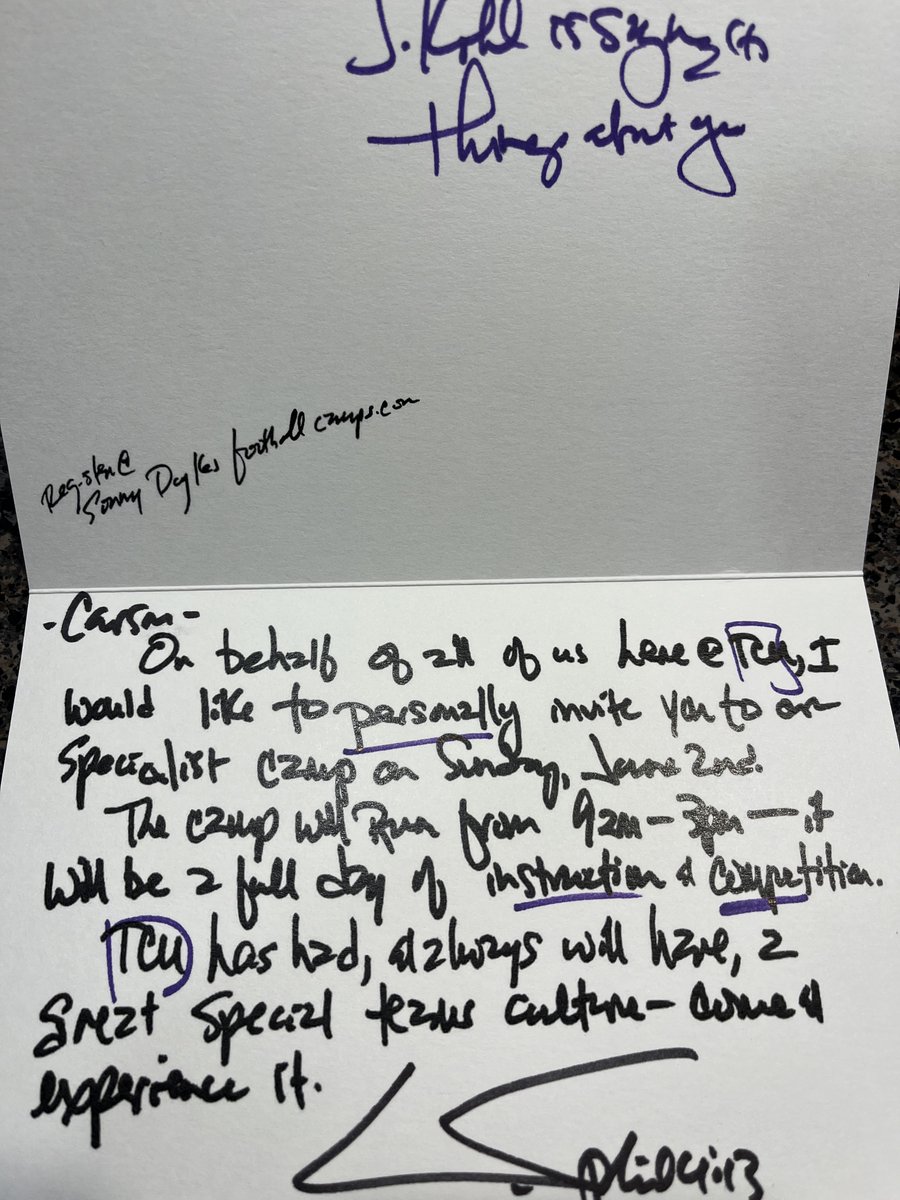 J. Kohl is saying
things about you
Register @
Sonny Dykes football camps.com
- Carson -
On behalf of all of us here @ TCU, I
would like to personally invite you to our
Specialist camp on Sunday, June 2nd.
The camp will Run from 9am - 3pm — it
will be a full day of instruction & competition.
TCU has had, & always will have, a
great special teams culture - come &
experience it.
Phil 4:13